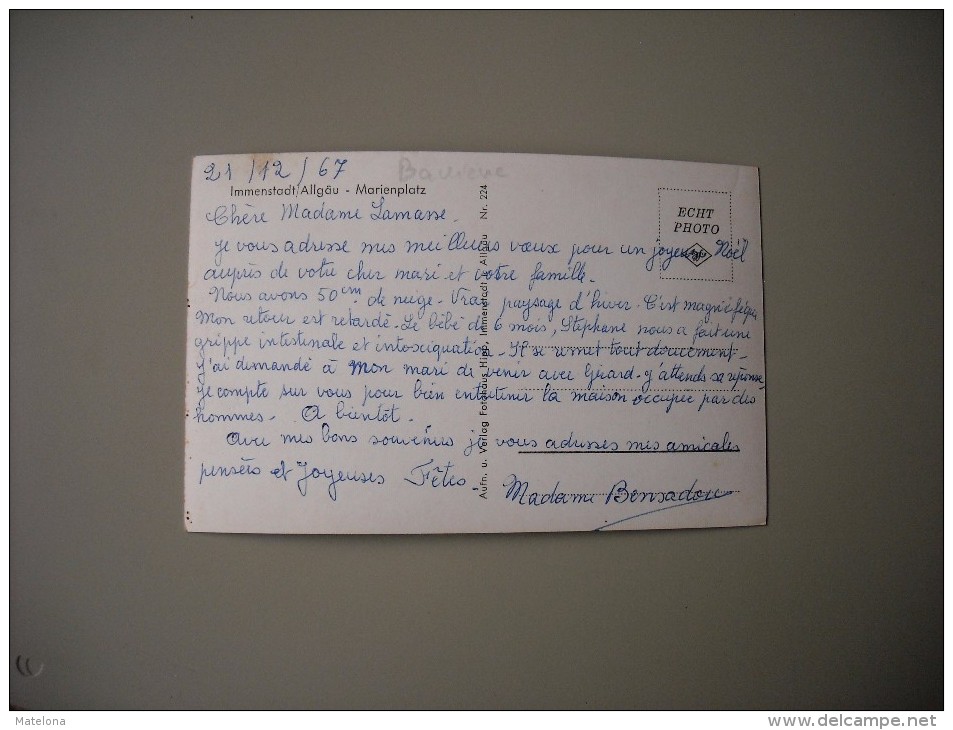 21/12/67
Bavière
Immenstadt/Allgäu - Marienplatz
Chère Madame Lamasse.
ECHT
PHOTO
je vous adresse mes meilleurs vœux pour un joyeux Noël
auprès de votre cher mari et votre famille.
Nous avons 50 cm de neige - Vrai paysage d'hiver. C'est magnifique
Mon retour est retardé - Le bébé de 6 mois, Stéphane nous a fait une
grippe intestinale et intoxiquation - Il se remet tout doucement -
J'ai demandé à Mon mari de venir avec Gérard - j'attends sa réponse -
je compte sur vous pour bien entretenir la maison occupée par des
hommes - A bientôt.
Avec mes bons souvenirs je vous adresses mes amicales
pensées et Joyeuses Fêtes
Madame Bensadou
Aufn. u. Verlag Fotohaus Hipp, Immenstadt Allgäu Nr. 224
Matelona
www.delcampe.net